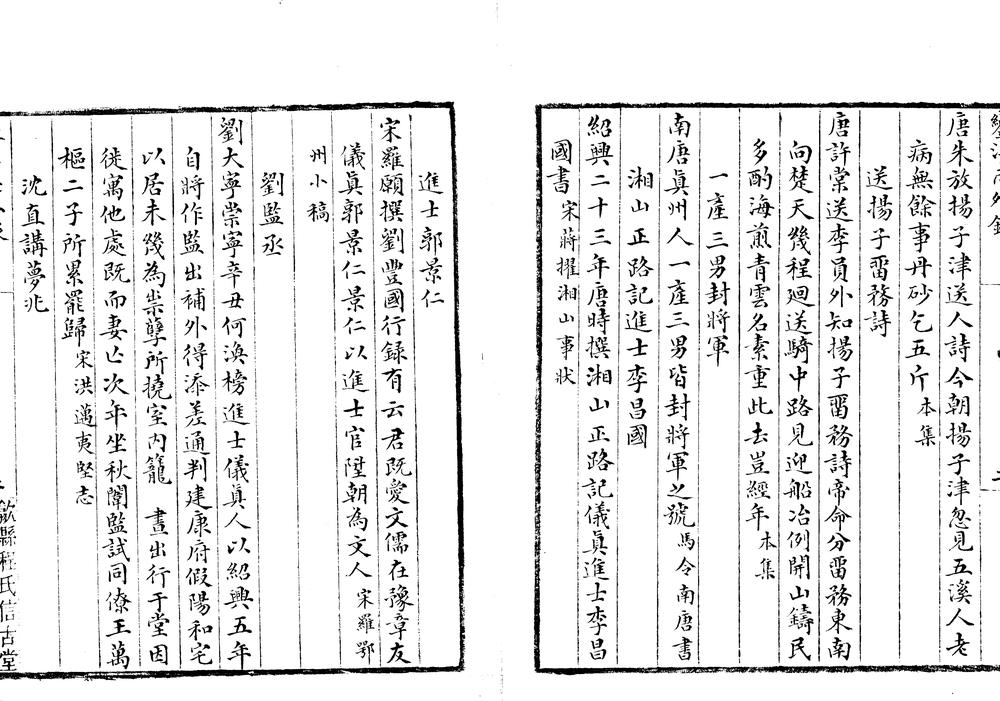 唐朱放揚子津送人詩今朝揚子津忽見五溪人老
病無餘事丹砂乞五斤本集
送揚子畱務詩
唐許棠送李員外知揚子畱務詩帝命分畱務東南
向楚天幾程廻送騎中路見迎船冶例開山鑄民
多酌海煎青雲名素重此去豈經年本集
一產三男封將軍
南唐真州人一產三男皆封將軍之號馬令南唐書
湘山正路記進士李昌國
紹興二十三年唐時撰湘山正路記儀真進士李昌
國書宋蔣擢湘山事狀
進士郭景仁
宋羅願撰劉豐國行錄有云君既愛文儒在豫章友
儀真郭景仁景仁以進士官陞朝為文人宋羅鄂
州小稿
劉監丞
劉大寧崇寧辛丑何渙榜進士儀真人以紹興五年
自將作監出補外得添差通判建康府假陽和宅
以居未幾為祟孽所撓室內籠 晝出行于堂因
徙寓他處既而妻亾次年坐秋闈監試同僚王萬
樞二子所累罷歸宋洪邁夷堅志
沈直講夢兆
歙縣程氏信古堂